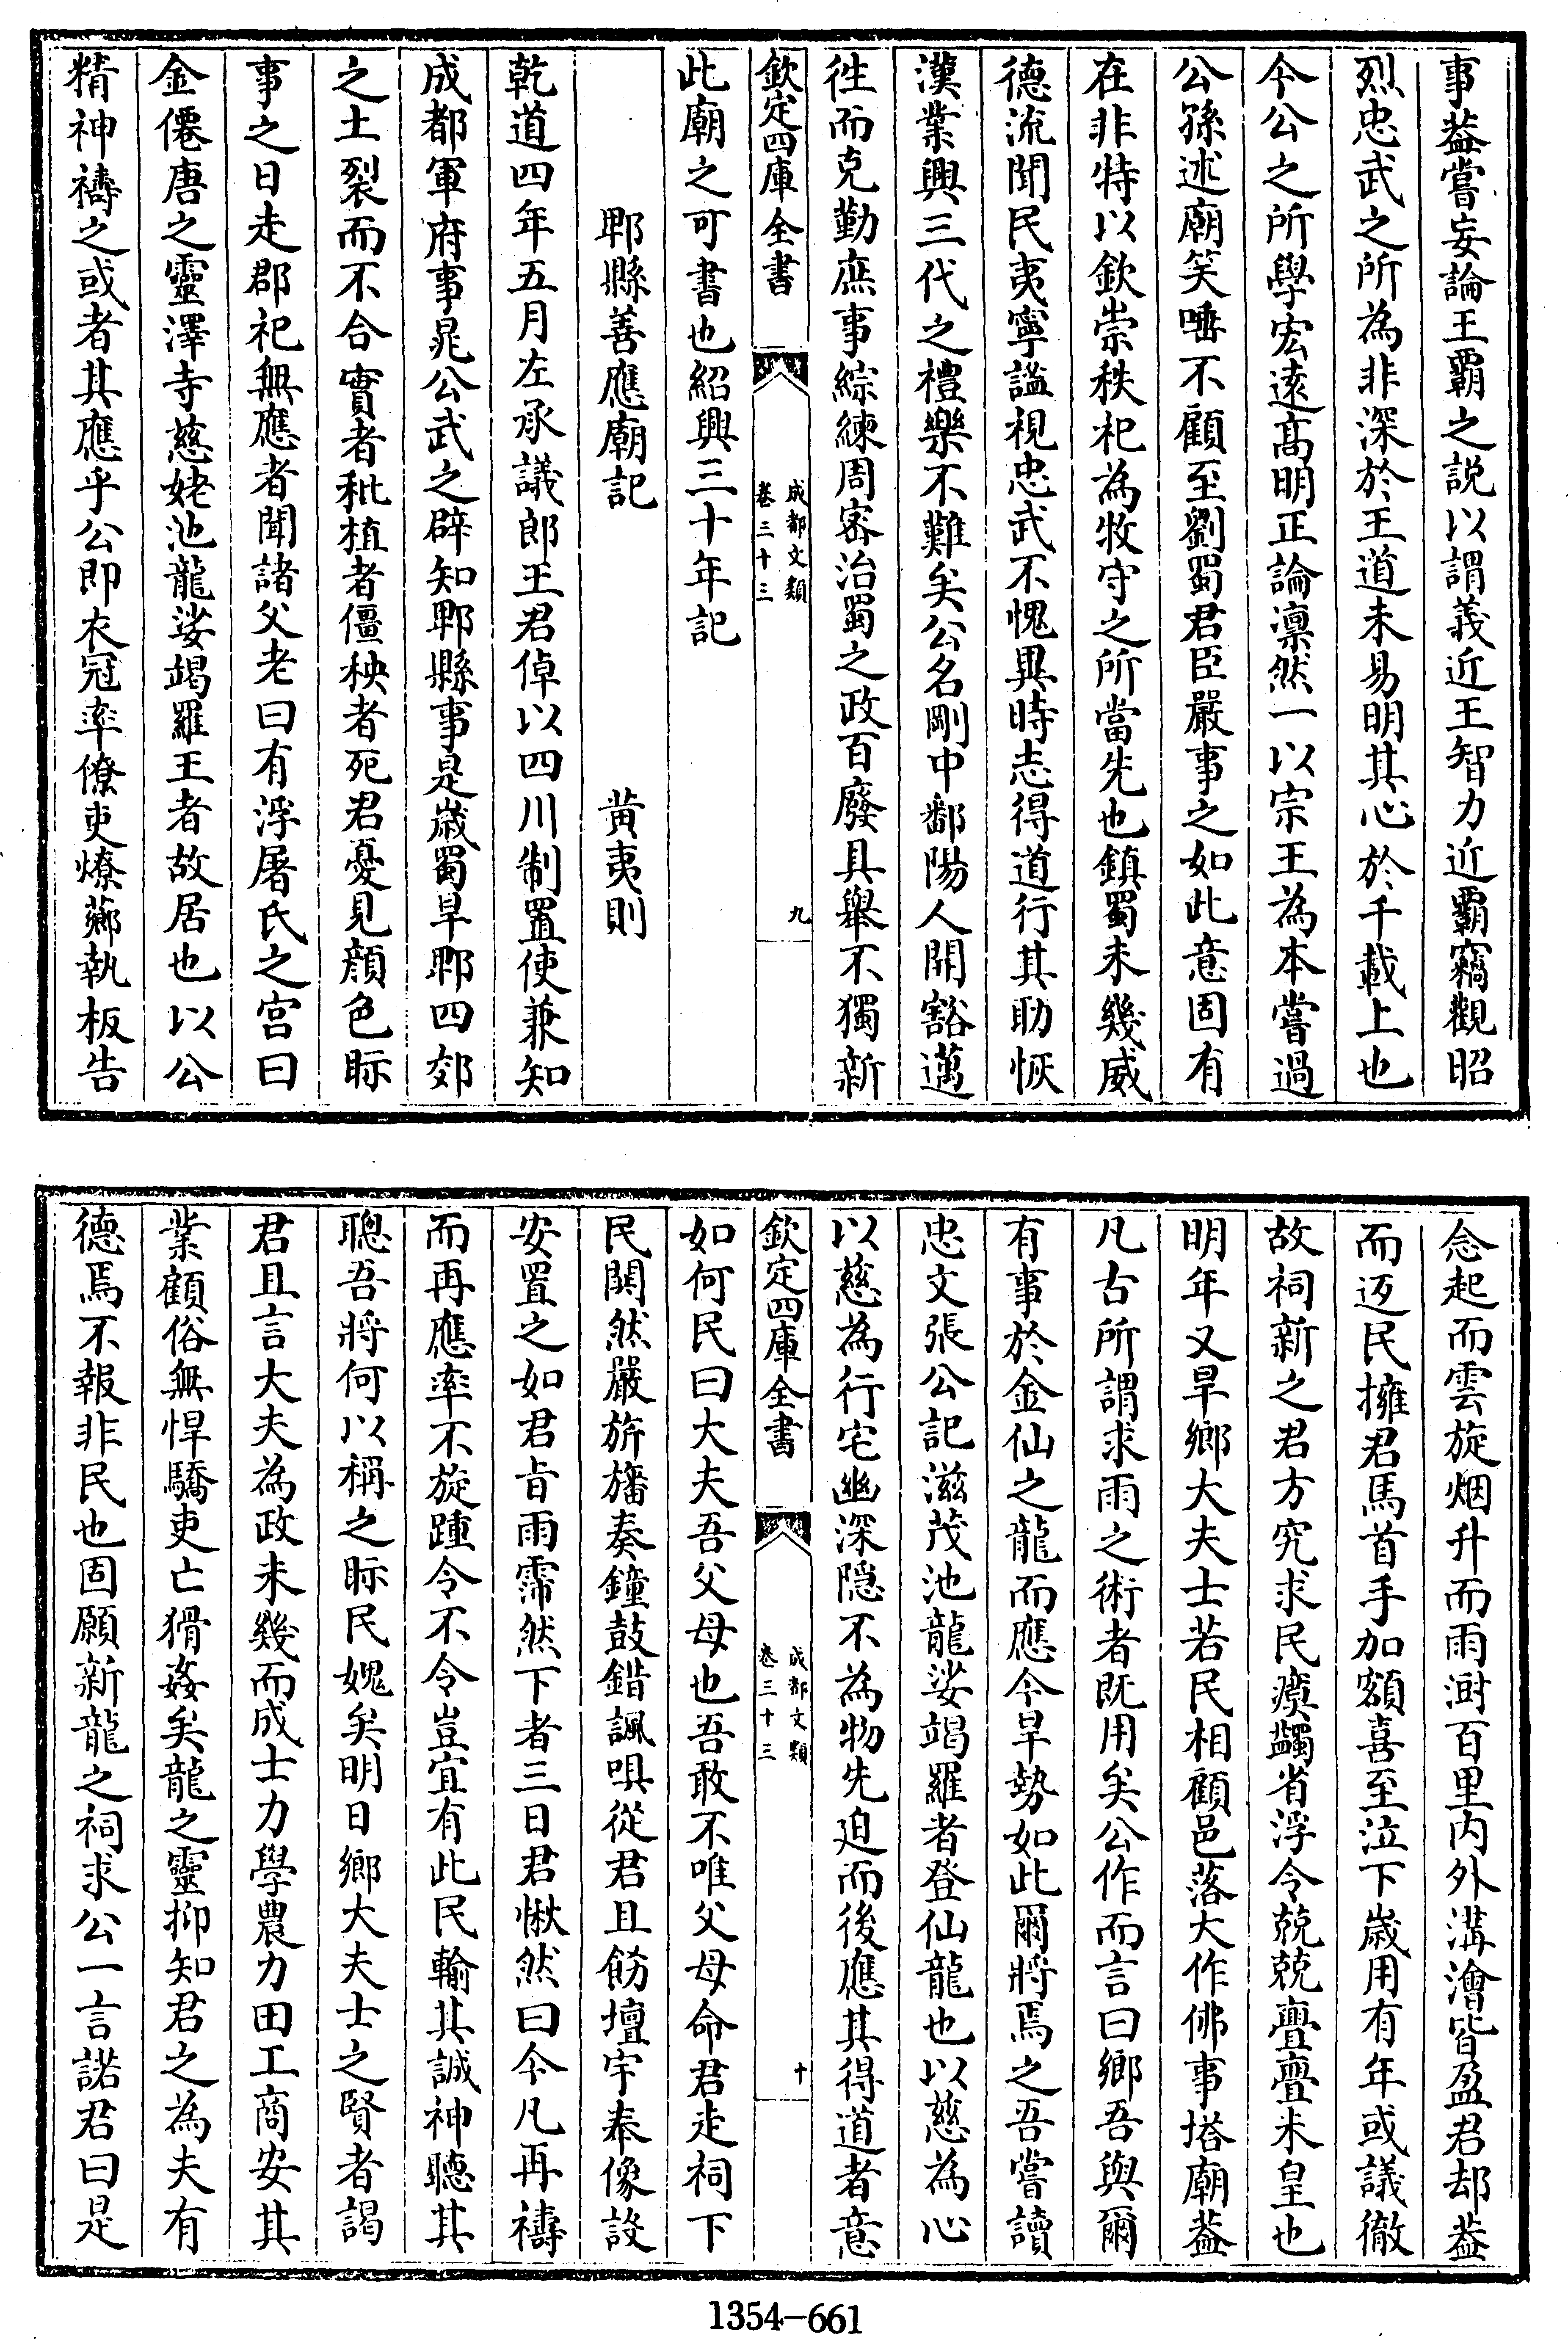 事葢嘗妄論王覇之説以謂義近王智力近覇竊觀昭
烈忠武之所為非深於王道未易明其心於千載上也
今公之所學宏逺髙明正論凛然一以宗王為本嘗過
公孫述廟笑唾不顧至劉蜀君臣嚴事之如此意固有
在非特以欽崇秩祀為牧守之所當先也鎮蜀未幾威
德流聞民夷寧謐視忠武不愧異時志得道行其助恢
漢業興三代之禮樂不難矣公名剛中鄱陽人開豁邁
徃而克勤庶事綜練周密治蜀之政百廢具舉不獨新
欽定四庫全書
成都文類
卷三十三
九
此廟之可書也紹興三十年記
郫縣善應廟記
黄夷則
乾道四年五月左承議郎王君倬以四川制置使兼知
成都軍府事晁公武之辟知郫縣事是嵗蜀旱郫四郊
之土裂而不合實者秕植者僵秧者死君憂見顔色眎
事之日走郡祀無應者聞諸父老曰有浮屠氏之宫曰
金僊唐之靈澤寺慈姥池龍娑竭羅王者故居也以公
精神禱之或者其應乎公即衣冠率僚吏燎薌執板告
念起而雲旋烟升而雨澍百里内外溝澮皆盈君却葢
而迈民擁君馬首手加額喜至泣下嵗用有年或議徹
故祠新之君方究求民瘼蠲省浮令兢兢亹亹未皇也
明年又旱鄉大夫士若民相顧邑落大作佛事塔廟葢
凡古所謂求雨之術者既用矣公作而言曰鄉吾與爾
有事於金仙之龍而應今旱勢如此爾將焉之吾嘗讀
忠文張公記滋茂池龍娑竭羅者登仙龍也以慈為心
以慈為行宅幽深隠不為物先迫而後應其得道者意
欽定四庫全書
成都文類
卷三十三
十
如何民曰大夫吾父母也吾敢不唯父母命君走祠下
民閧然嚴旂旛奏鐘鼓鍇諷唄從君且飭壇宇奉像設
安置之如君㫖雨霈然下者三日君愀然曰今凡再禱
而再應率不旋踵令不令豈宜有此民輸其誠神聽其
聰吾將何以稱之眎民媿矣明日鄉大夫士之賢者謁
君且言大夫為政未幾而成士力學農力田工商安其
業顧俗無悍驕吏亡猾姦矣龍之靈抑知君之為夫有
德焉不報非民也固願新龍之祠求公一言諾君曰是
1354-661